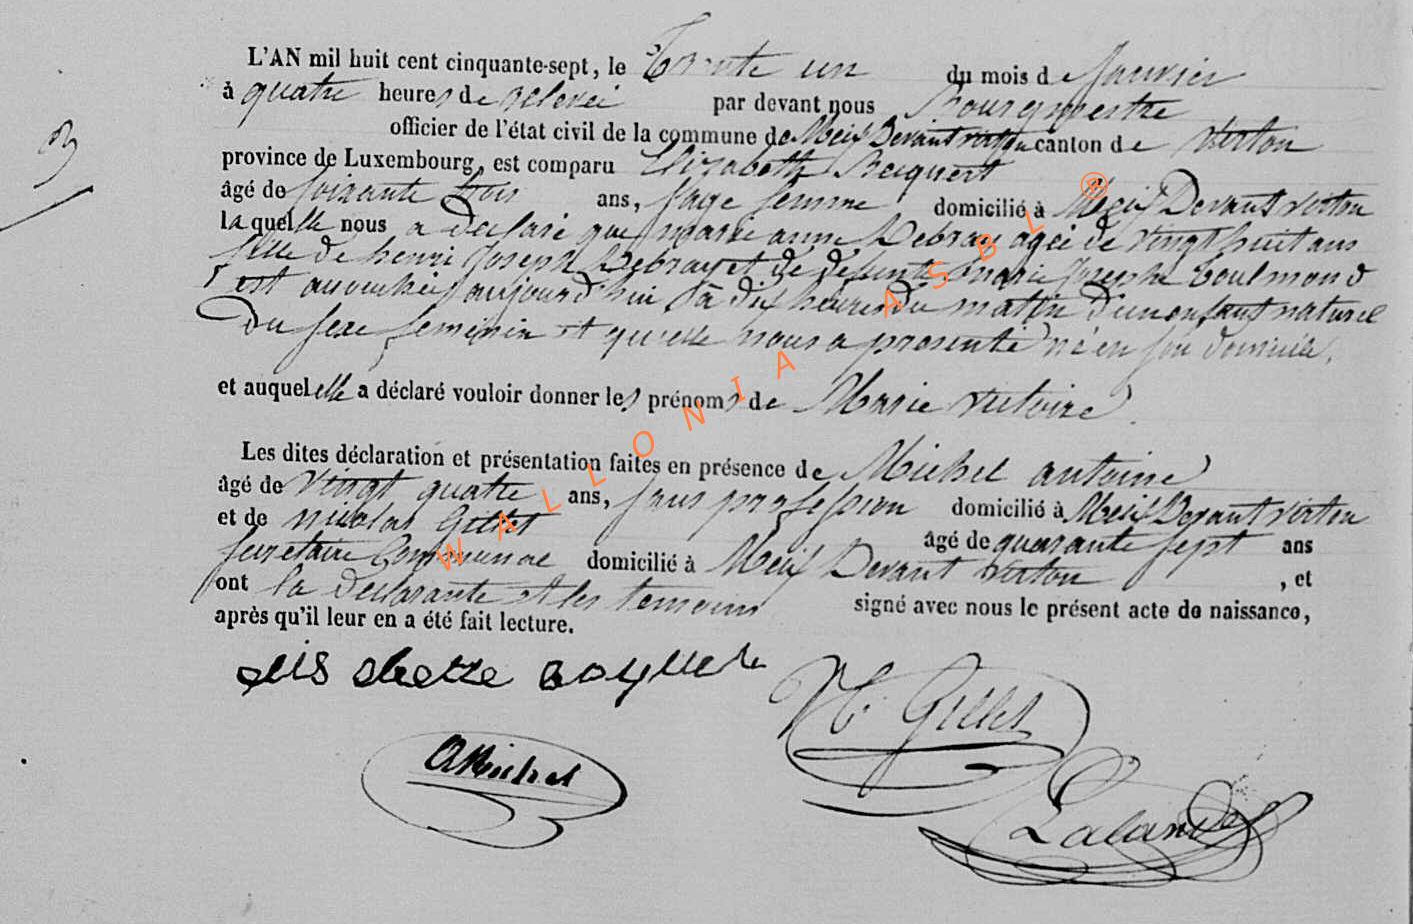 3
L'AN mil huit cent cinquante-sept, le Trente un du mois de Janvier
à quatre heures de relevée par devant nous Bourgmestre
officier de l'état civil de la commune de Meix Devant virton canton de virton
province de Luxembourg, est comparu Elizabeth
âgé de soixante trois ans, sage femme domicilié à Meix Devant virton
laquelle nous a declaré que marie anne Debray agée de vingt huit ans
fille de henri Joseph Debray et de défunte marie Josephe Goulmond
est accouchée aujourd'hui à dix heures du matin d'un enfant naturel
Du sexe feminin et qu'elle nous a presenté né en son domicile,
et auquel elle a déclaré vouloir donner les prénoms de Marie victoire
Les dites déclaration et présentation faites en présence de Michel antoine
âgé de vingt quatre ans, sans profession domicilié à Meix Devant virton
et de nicolas Gillet âgé de quarante sept ans
secretaire Communal domicilié à Meix Devant virton , et
ont la declarante et les temoins signé avec nous le présent acte de naissance,
après qu'il leur en a été fait lecture.
N Gillet
A Michel
Lalande
WALLONIA ASBL ®